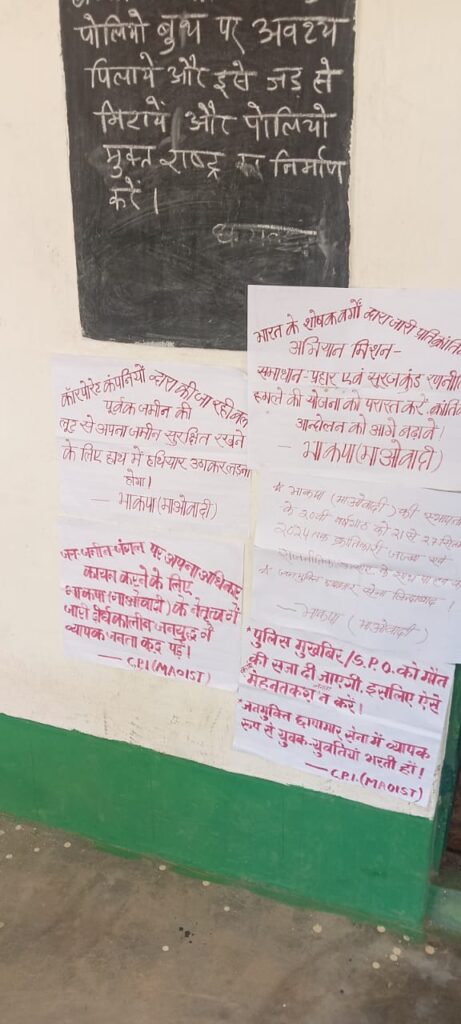 पोलियो बुथ पर अवश्य
पिलाये और इसे जड़ से
मिटायें और पोलियो
मुक्त राष्ट्र का निर्माण
करें।
कॉरपोरेट कंपनियों द्वारा की जा रही बल
पूर्वक जमीन की
लूट से अपना जमीन सुरक्षित रखने
के लिए हाथ में हथियार उठाकर लड़ना
होगा।
— भाकपा (माओवादी)
जल-जमीन जंगल पर अपना अधिकार
कायम करने के लिए
भाकपा (माओवादी) के नेतृत्व में
जारी दीर्घकालीन जनयुद्ध में
व्यापक जनता कूद पड़ें!
— C.P.I. (MAOIST)
भारत के शोषक वर्गों द्वारा जारी प्रतिक्रांति
अभियान मिशन-
समाधान-प्रहार एवं सूरजकुंड रणनीति
हमले की योजना को परास्त करें, क्रांति
आन्दोलन को आगे बढ़ावें।
— भाकपा (माओवादी)
★ भाकपा (माओवादी) की स्थापना
के 20वीं वर्षगांठ को 21 से
2024 तक क्रांतिकारी
के साथ
★ जनमुक्ति छापामार सेना जिन्दाबाद!
— भाकपा (माओवादी)
★ पुलिस मुखबिर/S.P.O. को मौत
की सजा दी जाएगी, इसलिए ऐसे
मेहनतकश जनता न करें।
★ जनमुक्ति छापामार सेना में व्यापक
रूप से युवक-युवतियाँ भरती हों!
— C.P.I. (MAOIST)